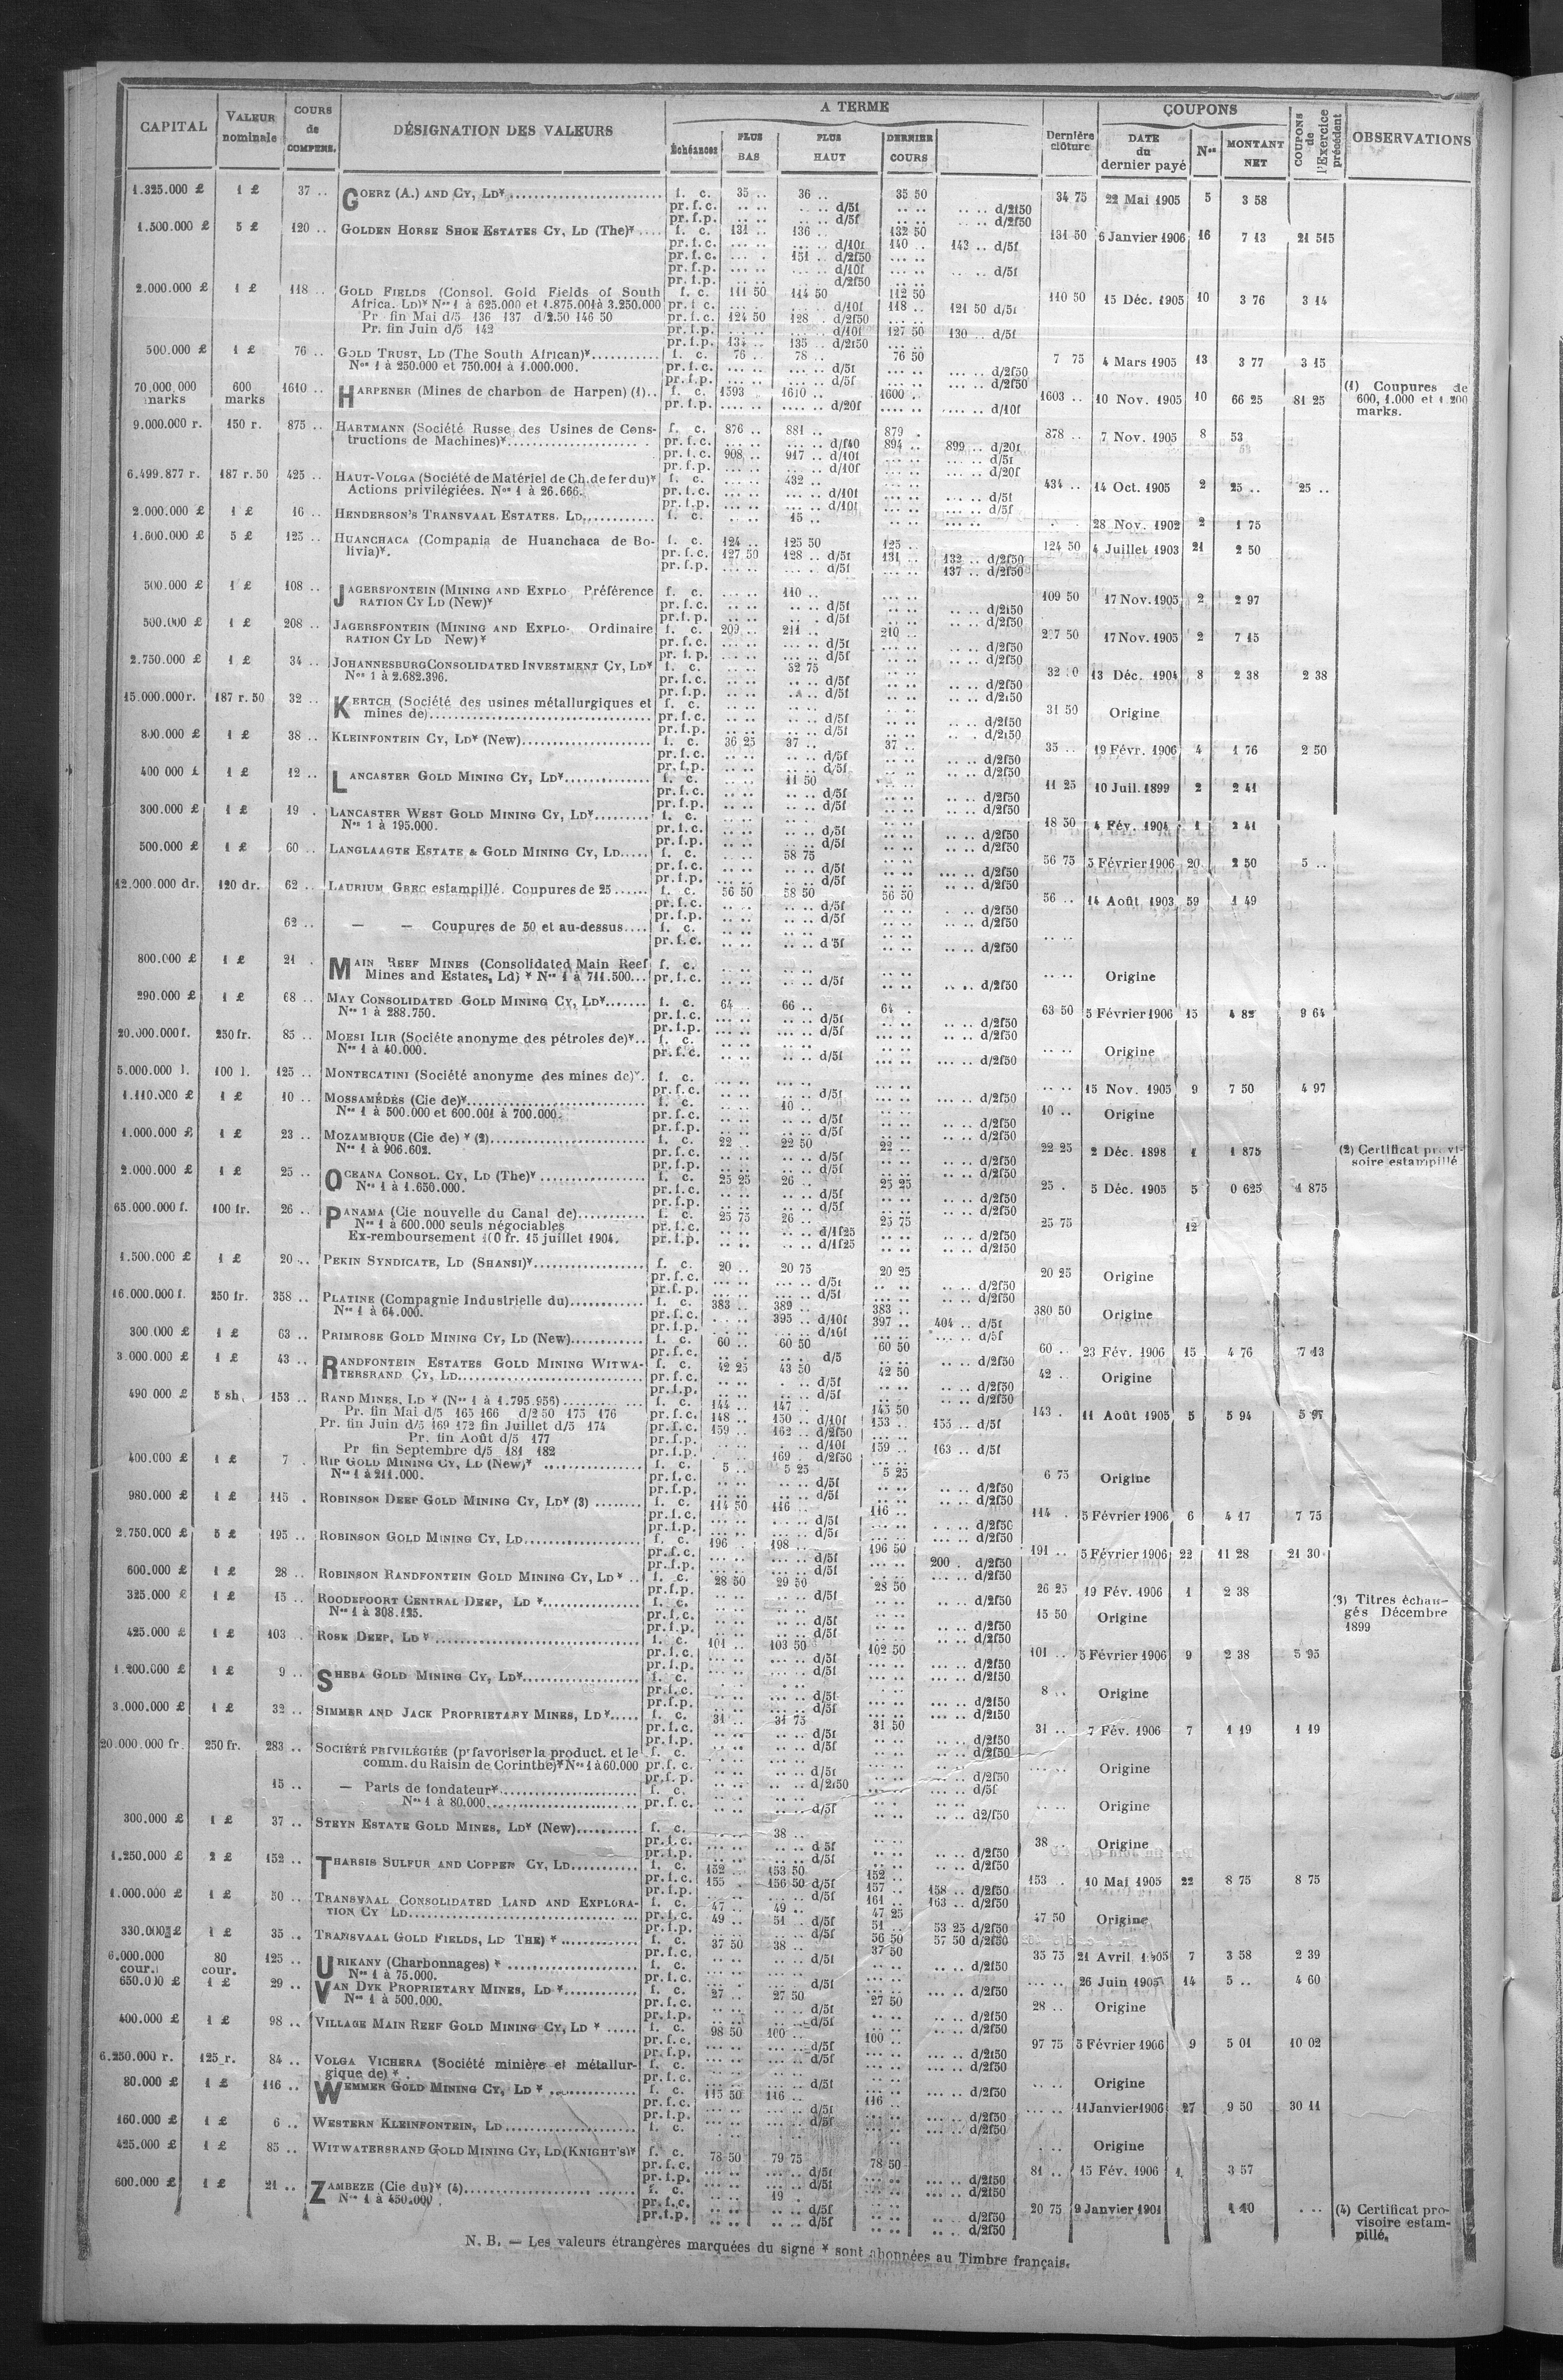 CAPITAL | VALEUR nominale | COURS de COMPENS. | DÉSIGNATION DES VALEURS | A TERME | Dernière clôture | COUPONS | COUPONS de l'Exercice précédent | OBSERVATIONS
Échéances | PLUS BAS | PLUS HAUT | DERNIER COURS | DATE du dernier payé | Nos | MONTANT NET
1.325.000 £ | 1 £ | 37 .. | GOERZ (A.) AND CY, LD* | f. c. | 35 .. | 36 .. | 35 50 | 34 75 | 22 Mai 1905 | 5 | 3 58
pr. f. c. | d/5f | d/2f50
pr. f. p. | d/5f | d/2f50
1.500.000 £ | 5 £ | 120 .. | GOLDEN HORSE SHOE ESTATES CY, LD (The)* | f. c. | 131 .. | 136 .. | 132 50 | 131 50 | 6 Janvier 1906 | 16 | 7 13 | 21 515
pr. f. c. | d/10f | 140 .. | 143 .. d/5f
pr. f. c. | 151 .. d/2f50
pr. f. p. | d/10f | d/5f
pr. f. p. | d/2f50
2.000.000 £ | 1 £ | 118 .. | GOLD FIELDS (Consol. Gold Fields of South | f. c. | 111 50 | 114 50 | 112 50 | 110 50 | 15 Déc. 1905 | 10 | 3 76 | 3 14
Africa. LD)* Nos 1 à 625.000 et 1.875.001 à 3.250.000 | pr. f. c. | d/10f | 118 .. | 121 50 d/5f
Pr fin Mai d/5 136 137 d/2.50 146 50 | pr. f. c. | 124 50 | 128 . d/2f50
Pr. fin Juin d/5 142 | pr. f. p. | d/10f | 127 50 | 130 .. d/5f
pr. f. p. | 134 .. | 135 .. d/2f50
500.000 £ | 1 £ | 76 .. | GOLD TRUST, LD (The South African)* | f. c. | 76 .. | 78 .. | 76 50 | 7 75 | 4 Mars 1905 | 13 | 3 77 | 3 15
Nos 1 à 250.000 et 750.001 à 1.000.000. | pr. f. c. | d/5f | d/2f50
pr. f. p. | d/5f | d/2f50
70.000.000 marks | 600 marks | 1610 .. | HARPENER (Mines de charbon de Harpen) (1) | f. c. | 1593 | 1610 .. | 1600 .. | 1603 .. | 10 Nov. 1905 | 10 | 66 25 | 81 25 | (1) Coupures de 600, 1.000 et 1.200 marks.
pr. f. p. | d/20f | d/10f
9.000.000 r. | 150 r. | 875 .. | HARTMANN (Société Russe des Usines de Cons- | f. c. | 876 .. | 881 .. | 879 . | 878 .. | 7 Nov. 1905 | 8 | 53
tructions de Machines)* | pr. f. c. | d/f40 | 894 .. | 899 .. d/20f
pr. f. c. | 908 .. | 917 .. d/10f | d/5f
pr. f. p. | d/10f | d/20f
6.499.877 r. | 187 r. 50 | 425 .. | HAUT-VOLGA (Société de Matériel de Ch. de fer du)* | f. c. | 432 .. | 434 .. | 14 Oct. 1905 | 2 | 25 .. | 25 ..
Actions privilégiées. Nos 1 à 26.666. | pr. f. c. | d/10f | d/5f
pr. f. p. | d/10f | d/5f
2.000.000 £ | 1 £ | 16 .. | HENDERSON'S TRANSVAAL ESTATES, LD | f. c. | 15 .. | 28 Nov. 1902 | 2 | 1 75
1.600.000 £ | 5 £ | 125 .. | HUANCHACA (Compania de Huanchaca de Bo- | f. c. | 124 .. | 125 50 | 125 .. | 124 50 | 4 Juillet 1903 | 21 | 2 50
livia)*. | pr. f. c. | 127 50 | 128 .. d/5f | 131 .. | 132 .. d/2f50
pr. f. p. | d/5f | 137 .. d/2f50
500.000 £ | 1 £ | 108 .. | JAGERSFONTEIN (MINING AND EXPLO Préférence | f. c. | 110 .. | 109 50 | 17 Nov. 1905 | 2 | 2 97
RATION CY LD (New)* | pr. f. c. | d/5f | d/2f50
pr. f. p. | d/5f | d/2f50
500.000 £ | 1 £ | 208 .. | JAGERSFONTEIN (MINING AND EXPLO- Ordinaire | f. c. | 209 .. | 211 .. | 210 .. | 2.7 50 | 17 Nov. 1905 | 2 | 7 15
RATION CY LD New)* | pr. f. c. | d/5f | d/2f50
pr. f. p. | d/5f | d/2f50
2.750.000 £ | 1 £ | 34 .. | JOHANNESBURG CONSOLIDATED INVESTMENT CY, LD* | f. c. | 32 75 | 13 Déc. 1904 | 8 | 2 38 | 2 38
Nos 1 à 2.682.396. | pr. f. c. | d/5f | d/2f50
pr. f. p. | d/5f | d/2f50
15.000.000 r. | 187 r. 50 | 32 .. | KERTCH (Société des usines métallurgiques et | f. c. | 31 50 | Origine
mines de) | pr. f. c. | d/5f | d/2f50
pr. f. p. | d/5f | d/2f50
800.000 £ | 1 £ | 38 .. | KLEINFONTEIN CY, LD* (New) | f. c. | 36 25 | 37 .. | 37 .. | 35 .. | 19 Févr. 1906 | 4 | 1 76 | 2 50
pr. f. c. | d/5f | d/2f50
pr. f. p. | d/5f | d/2f50
400 000 £ | 1 £ | 12 .. | LANCASTER GOLD MINING CY, LD* | f. c. | 11 50 | 11 25 | 10 Juil. 1899 | 2 | 2 41
pr. f. c. | d/5f | d/2f50
pr. f. p. | d/5f | d/2f50
300.000 £ | 1 £ | 19 . | LANCASTER WEST GOLD MINING CY, LD* | f. c. | 18 50 | 4 Fév. 1904 | 1 | 2 41
Nos 1 à 195.000. | pr. f. c. | d/5f | d/2f50
pr. f. p. | d/5f | d/2f50
500.000 £ | 1 £ | 60 .. | LANGLAAGTE ESTATE & GOLD MINING CY, LD | f. c. | 58 75 | 56 75 | 5 Février 1906 | 20 | 2 50 | 5 ..
pr. f. c. | d/5f | d/2f50
pr. f. p. | d/5f | d/2f50
12.000.000 dr. | 120 dr. | 62 .. | LAURIUM GREC estampillé. Coupures de 25 | f. c. | 56 50 | 58 50 | 56 50 | 56 .. | 14 Août 1903 | 59 | 1 49
pr. f. c. | d/5f | d/2f50
pr. f. p. | d/5f | d/2f50
62 .. | — — Coupures de 50 et au-dessus | f. c.
pr. f. c. | d 5f | d/2f50
800.000 £ | 1 £ | 21 . | MAIN REEF MINES (Consolidated Main Reef | f. c. | Origine
Mines and Estates, Ld) * Nos 1 à 711.500 | pr. f. c. | d/5f | d/2f50
290.000 £ | 1 £ | 68 .. | MAY CONSOLIDATED GOLD MINING CY, LD* | f. c. | 64 .. | 66 .. | 64 . | 63 50 | 5 Février 1906 | 15 | 4 82 | 9 64
Nos 1 à 288.750. | pr. f. c. | d/5f | d/2f50
pr. f. p. | d/5f | d/2f50
20.000.000 f. | 250 fr. | 85 .. | MOESI ILIR (Société anonyme des pétroles de)* | f. c. | Origine
Nos 1 à 40.000. | pr. f. c. | d/5f | d/2f50
5.000.000 l. | 100 l. | 125 .. | MONTECATINI (Société anonyme des mines de)*. | f. c. | 15 Nov. 1905 | 9 | 7 50 | 4 97
pr. f. c. | d/5f | d/2f50
1.110.000 £ | 1 £ | 10 .. | MOSSAMÉDÈS (Cie de)* | f. c. | 10 .. | 10 .. | Origine
Nos 1 à 500.000 et 600.001 à 700.000. | pr. f. c. | d/5f | d/2f50
pr. f. p. | d/5f | d/2f50
1.000.000 £ | 1 £ | 23 .. | MOZAMBIQUE (Cie de) * (2) | f. c. | 22 .. | 22 50 | 22 .. | 22 25 | 2 Déc. 1898 | 1 | 1 875 | (2) Certificat provisoire estampillé
Nos 1 à 906.602. | pr. f. c. | d/5f | d/2f50
pr. f. p. | d/5f | d/2f50
2.000.000 £ | 1 £ | 25 .. | OCEANA CONSOL. CY, LD (The)* | f. c. | 25 25 | 26 .. | 25 25 | 25 . | 5 Déc. 1905 | 5 | 0 625 | 1 875
Nos 1 à 1.650.000. | pr. f. c. | d/5f | d/2f50
pr. f. p. | d/5f | d/2f50
65.000.000 f. | 100 fr. | 26 .. | PANAMA (Cie nouvelle du Canal de) | f. c. | 25 75 | 26 .. | 25 75 | 25 75 | 12
Nos 1 à 600.000 seuls négociables | pr. f. c. | d/1f25 | d/2f50
Ex-remboursement 100 fr. 15 juillet 1904. | pr. f. p. | d/1f25 | d/2f50
1.500.000 £ | 1 £ | 20 .. | PEKIN SYNDICATE, LD (SHANSI)* | f. c. | 20 .. | 20 75 | 20 25 | 20 25 | Origine
pr. f. c. | d/5f | d/2f50
pr. f. p. | d/5f | d/2f50
16.000.000 f. | 250 fr. | 358 .. | PLATINE (Compagnie Industrielle du) | f. c. | 383 .. | 389 .. | 383 .. | 380 50 | Origine
Nos 1 à 64.000. | pr. f. c. | 395 .. d/10f | 397 .. | 404 .. d/5f
pr. f. p. | d/10f | d/5f
300.000 £ | 1 £ | 63 .. | PRIMROSE GOLD MINING CY, LD (New) | f. c. | 60 .. | 60 50 | 60 50 | 60 .. | 23 Fév. 1906 | 15 | 4 76 | 7 13
pr. f. c. | d/5 | d/2f50
3.000.000 £ | 1 £ | 43 .. | RANDFONTEIN ESTATES GOLD MINING WITWA- | f. c. | 42 25 | 43 50 | 42 50 | 42 .. | Origine
TERSRAND CY, LD | pr. f. c. | d/5f | d/2f50
pr. f. p. | d/5f | d/2f50
490 000 £ | 5 sh. | 153 .. | RAND MINES, LD * (Nos 1 à 1.795.956) | f. c. | 144 .. | 147 .. | 145 50 | 143 . | 11 Août 1905 | 5 | 5 94 | 5 97
Pr. fin Mai d/5 165 166 d/2 50 175 176 | pr. f. c. | 148 .. | 150 .. d/10f | 153 .. | 155 .. d/5f
Pr. fin Juin d/5 169 172 fin Juillet d/5 174 | pr. f. c. | 159 .. | 162 .. d/2f50
Pr. fin Août d/5 177 | pr. f. p. | d/10f | 159 .. | 163 .. d/5f
Pr fin Septembre d/5 181 182 | pr. f. p. | 169 . d/2f50
400.000 £ | 1 £ | 7 . | RIP GOLD MINING CY, LD (New)* | f. c. | 5 .. | 5 25 | 5 25 | 6 75 | Origine
Nos 1 à 211.000. | pr. f. c. | d/5f | d/2f50
pr. f. p. | d/5f | d/2f50
980.000 £ | 1 £ | 115 . | ROBINSON DEEP GOLD MINING CY, LD* (3) | f. c. | 114 50 | 116 .. | 116 .. | 114 . | 5 Février 1906 | 6 | 4 17 | 7 75
pr. f. c. | d/5f | d/2f50
pr. f. p. | d/5f | d/2f50
2.750.000 £ | 5 £ | 195 .. | ROBINSON GOLD MINING CY, LD | f. c. | 196 .. | 198 .. | 196 50 | 191 .. | 5 Février 1906 | 22 | 11 28 | 21 30
pr. f. c. | d/5f | 200 . d/2f50
pr. f. p. | d/5f | d/2f50
600.000 £ | 1 £ | 28 .. | ROBINSON RANDFONTEIN GOLD MINING CY, LD * | f. c. | 28 50 | 29 50 | 28 50 | 26 25 | 19 Fév. 1906 | 1 | 2 38
pr. f. p. | d/5f | d/2f50
325.000 £ | 1 £ | 15 .. | ROODEPOORT CENTRAL DEEP, LD * | f. c. | 15 50 | Origine | (3) Titres échangés Décembre 1899
Nos 1 à 308.125. | pr. f. c. | d/5f | d/2f50
pr. f. p. | d/5f | d/2f50
425.000 £ | 1 £ | 103 .. | ROSE DEEP, LD * | f. c. | 101 .. | 103 50 | 102 50 | 101 .. | 5 Février 1906 | 9 | 2 38 | 5 95
pr. f. c. | d/5f | d/2f50
pr. f. p. | d/5f | d/2f50
1.200.000 £ | 1 £ | 9 .. | SHEBA GOLD MINING CY, LD* | f. c. | 8 .. | Origine
pr. f. c. | d/5f | d/2f50
pr. f. p. | d/5f | d/2f50
3.000.000 £ | 1 £ | 32 .. | SIMMER AND JACK PROPRIETARY MINES, LD* | f. c. | 31 .. | 31 75 | 31 50 | 31 .. | 7 Fév. 1906 | 7 | 1 19 | 1 19
pr. f. c. | d/5f | d/2f50
pr. f. p. | d/5f | d/2f50
20.000.000 fr. | 250 fr. | 283 .. | SOCIÉTÉ PRIVILÉGIÉE (pr favoriser la product. et le | f. c. | Origine
comm. du Raisin de Corinthe)* Nos 1 à 60.000 | pr. f. c. | d/5f | d/2f50
pr. f. p. | d/2f50 | d/5f
15 .. | — Parts de fondateur* | f. c. | Origine
Nos 1 à 80.000 | pr. f. c. | d/5f | d2/f50
300.000 £ | 1 £ | 37 .. | STEYN ESTATE GOLD MINES, LD* (New) | f. c. | 38 .. | 38 .. | Origine
pr. f. c. | d 5f | d/2f50
pr. f. p. | d/5f | d/2f50
1.250.000 £ | 2 £ | 152 .. | THARSIS SULFUR AND COPPER CY, LD | f. c. | 152 .. | 153 50 | 152 .. | 153 . | 10 Mai 1905 | 22 | 8 75 | 8 75
pr. f. c. | 155 . | 156 50 d/5f | 157 .. | 158 .. d/2f50
pr. f. p. | d/5f | 161 .. | 163 .. d/2f50
1.000.000 £ | 1 £ | 50 .. | TRANSVAAL CONSOLIDATED LAND AND EXPLORA- | f. c. | 47 .. | 49 .. | 47 25 | 47 50 | Origine
TION CY LD | pr. f. c. | 49 .. | 51 .. d/5f | 51 .. | 53 25 d/2f50
pr. f. p. | d/5f | 56 50 | 57 50 d/2f50
330.000 £ | 1 £ | 35 .. | TRANSVAAL GOLD FIELDS, LD THE) * | f. c. | 37 50 | 38 .. | 37 50 | 35 75 | 21 Avril 1905 | 7 | 3 58 | 2 39
pr. f. c. | d/5f | d/2f50
6.000.000 cour. | 80 cour. | 125 .. | URIKANY (Charbonnages) * | f. c. | 26 Juin 1905 | 14 | 5 .. | 4 60
Nos 1 à 75.000. | pr. f. c. | d/5f | d/2f50
650.000 £ | 1 £ | 29 .. | VAN DYK PROPRIETARY MINES, LD * | f. c. | 27 .. | 27 50 | 27 50 | 28 .. | Origine
Nos 1 à 500.000. | pr. f. c. | d/5f | d/2f50
pr. f. p. | d/5f | d/2f50
400.000 £ | 1 £ | 98 .. | VILLAGE MAIN REEF GOLD MINING CY, LD * | f. c. | 98 50 | 100 .. | 100 .. | 97 75 | 5 Février 1906 | 9 | 5 01 | 10 02
pr. f. c. | d/5f | d/2f50
pr. f. p. | d/5f | d/2f50
6.250.000 r. | 125 r. | 84 .. | VOLGA VICHERA (Société minière et métallur- | f. c. | Origine
gique de) * . | pr. f. c. | d/5f | d/2f50
80.000 £ | 1 £ | 116 .. | WEMMER GOLD MINING CY, LD * | f. c. | 115 50 | 116 .. | 116 .. | 11 Janvier 1906 | 27 | 9 50 | 30 11
pr. f. c. | d/5f | d/2f50
pr. f. p. | d/5f | d/2f50
160.000 £ | 1 £ | 6 .. | WESTERN KLEINFONTEIN, LD | f. c. | Origine
425.000 £ | 1 £ | 85 .. | WITWATERSRAND GOLD MINING CY, LD (KNIGHT'S)* | f. c. | 78 50 | 79 75 | 78 50 | 81 .. | 15 Fév. 1906 | 1 | 3 57
pr. f. c. | d/5f | d/2f50
pr. f. p. | d/5f | d/2f50
600.000 £ | 1 £ | 21 .. | ZAMBEZE (Cie du)* (4) | f. c. | 19 .. | 20 75 | 9 Janvier 1901 | 1 10 | (4) Certificat provisoire estampillé.
Nos 1 à 450.000 | pr. f. c. | d/5f | d/2f50
pr. f. p. | d/5f | d/2f50
N. B. — Les valeurs étrangères marquées du signe * sont abonnées au Timbre français.